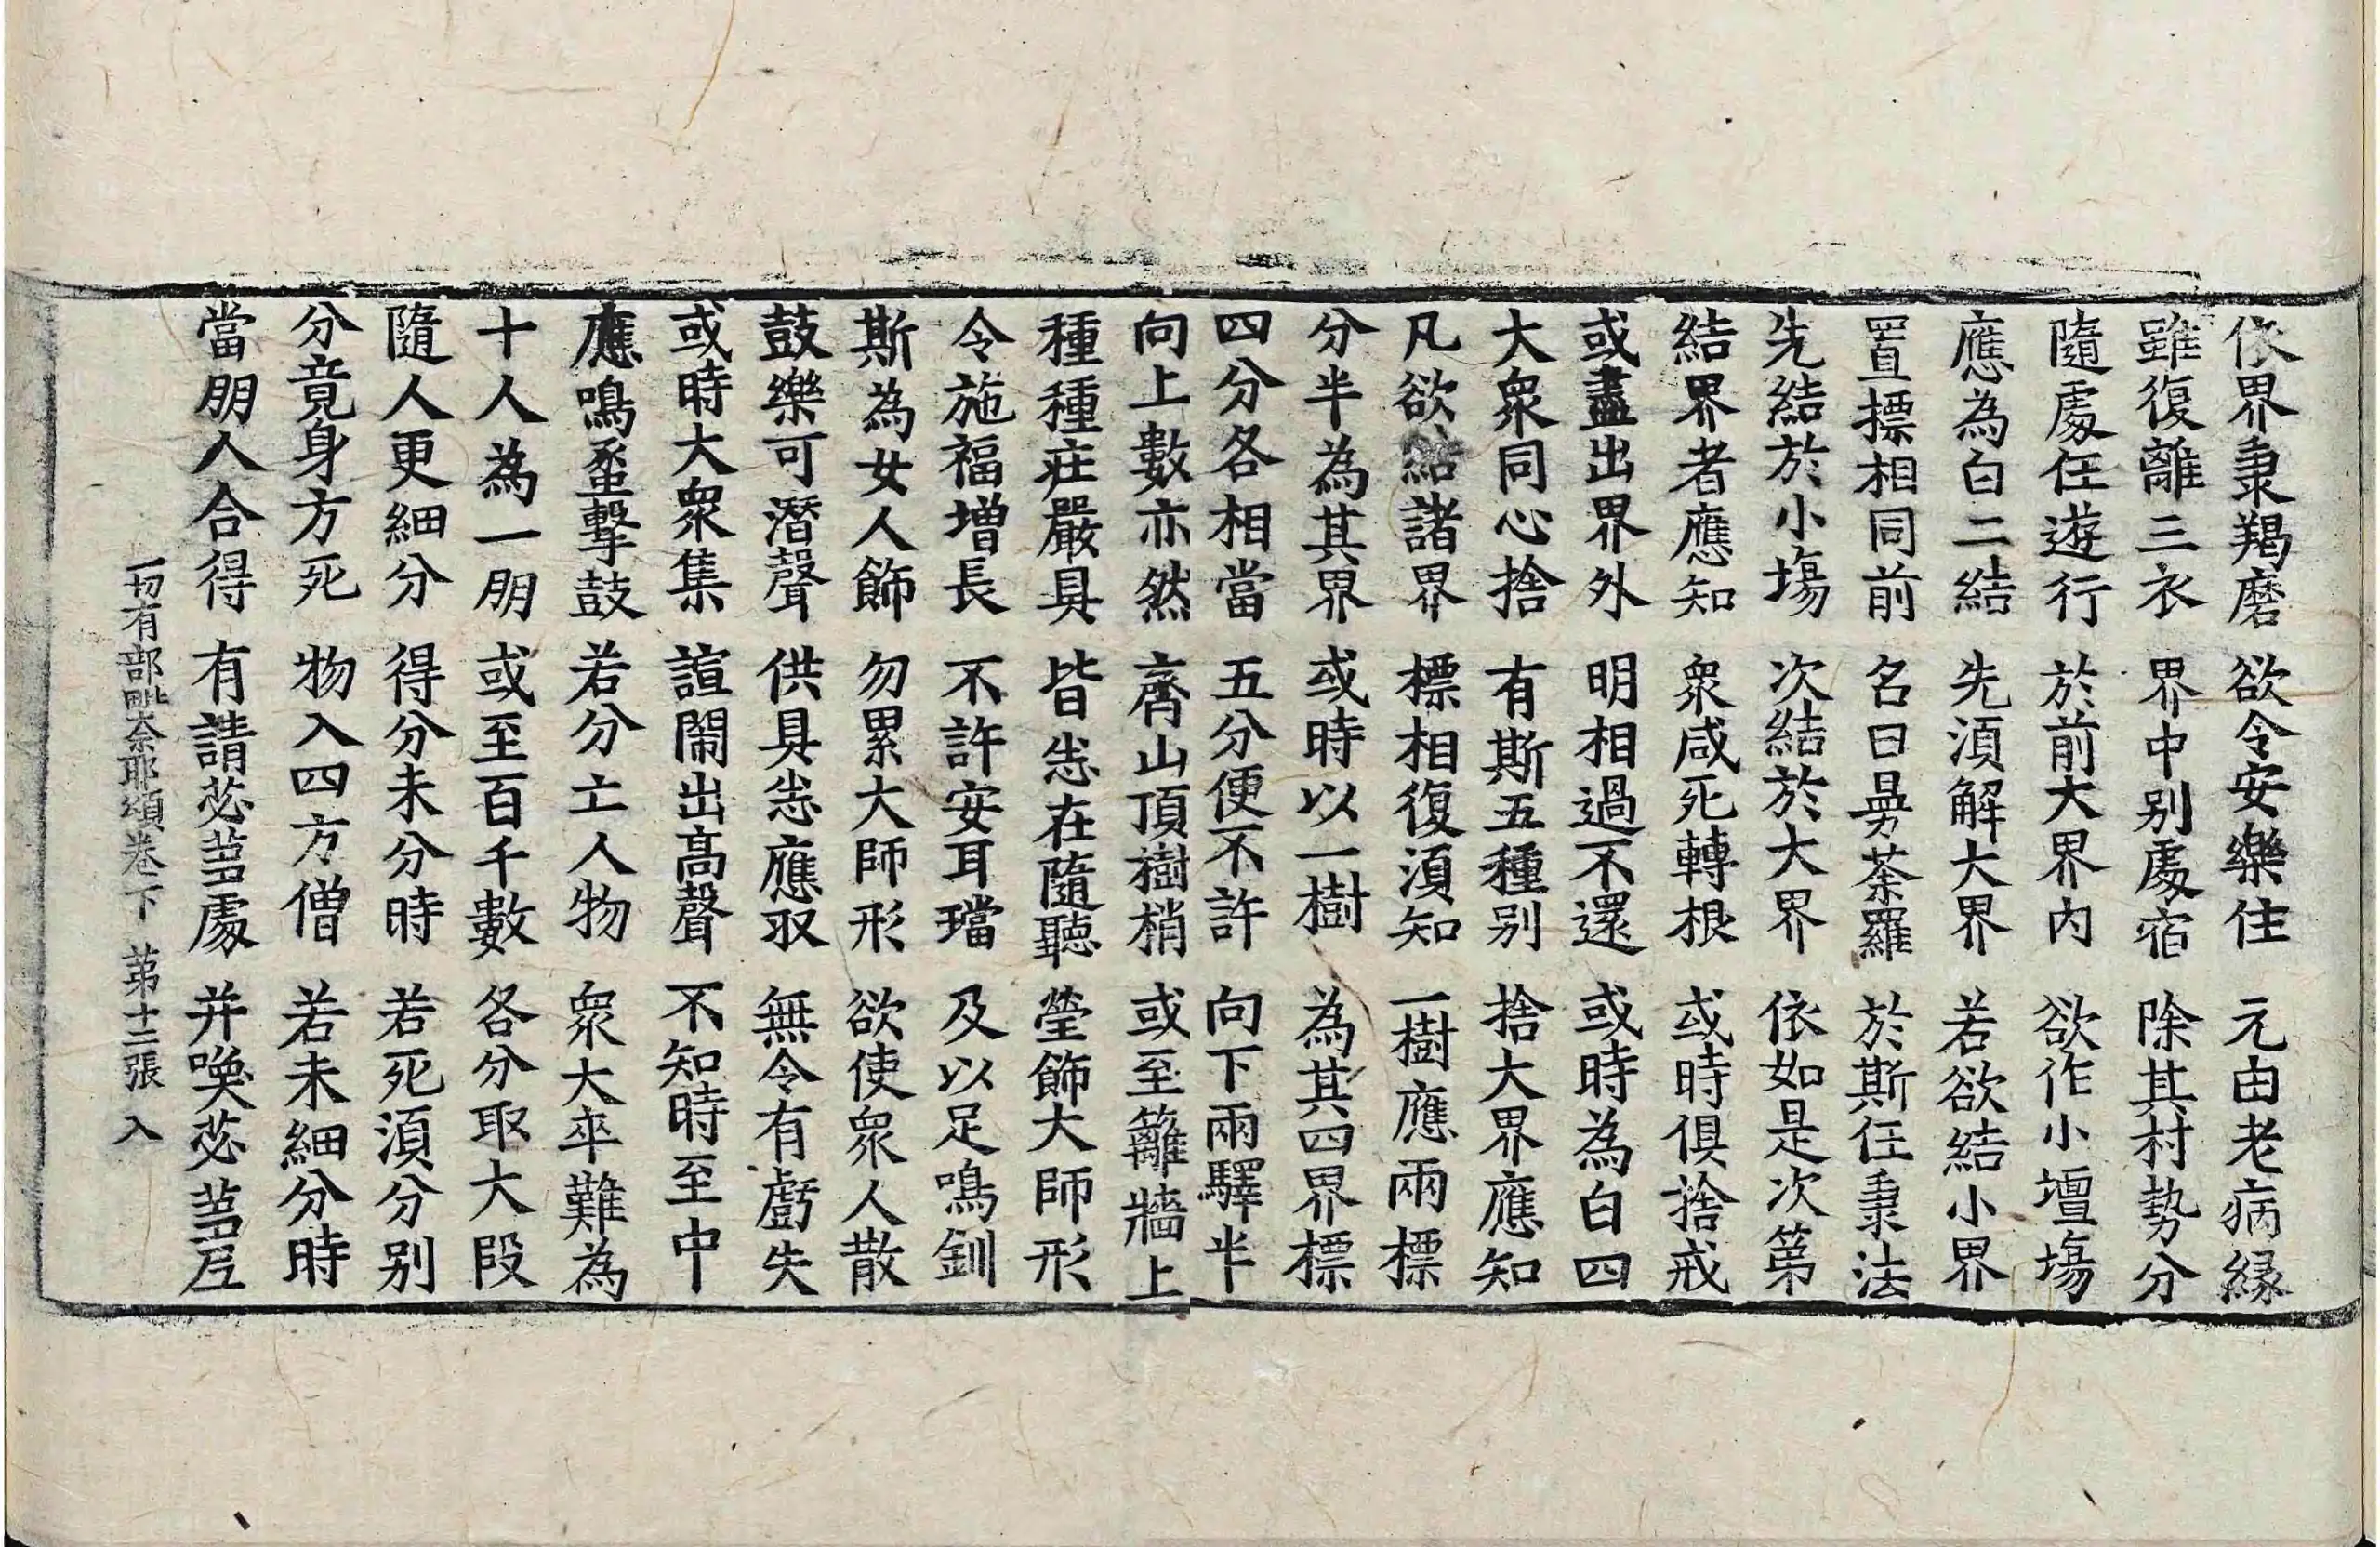 依界秉羯磨　欲令安樂住　元由老病緣
雖復離三衣　界中别處宿　除其村勢分
隨處任遊行　於前大界內　欲作小壇場
應為白二結　先湏解大界　若欲結小界
置摽相同前　名曰曼荼羅　於斯任秉法
先結於小場　次結於大界　依如是次第
結界者應知　衆咸死轉根　或時俱捨戒
或盡出界外　明相過不還　或時為白四
大衆同心捨　有斯五種别　捨大界應知
凡欲結諸界　標相復湏知　一樹應兩標
分半為其界　或時以一樹　為其四界標
四分各相當　五分便不許　向下兩驛半
向上數亦然　齊山頂樹梢　或至籬牆上
種種莊嚴具　皆悉在隨聽　瑩飾大師形
令施福增長　不許安耳璫　及以足鳴釧
斯為女人飾　勿累大師形　欲使衆人散
鼓樂可潛聲　供具悉應収　無令有虧失
或時大衆集　諠鬧出高聲　不知時至中
應鳴螺擊鼓　若分亡人物　衆大卒難為
十人為一朋　或至百千數　各分取大段
隨人更細分　得分未分時　若死湏分别
分竟身方死　物入四方僧　若未細分時
當朋人合得　有請苾蒭處　并喚苾蒭尼
一切有部毗奈耶頌卷下　第十二張　入